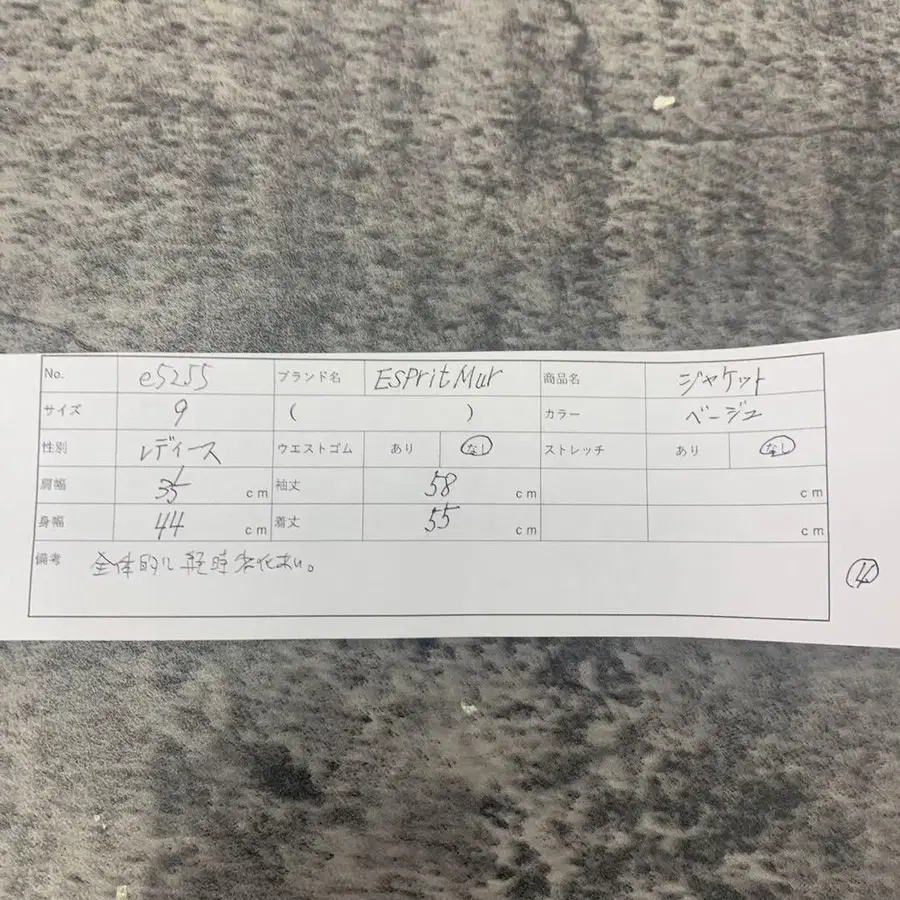 No. e5255 ブランド名 ESPritMur 商品名 ジャケット
サイズ 9 ( ) カラー ベージュ
性別 レディース ウエストゴム あり なし ストレッチ あり なし
肩幅 35 cm 袖丈 58 cm cm
身幅 44 cm 着丈 55 cm cm
備考 全体的に軽時劣化あり。
④